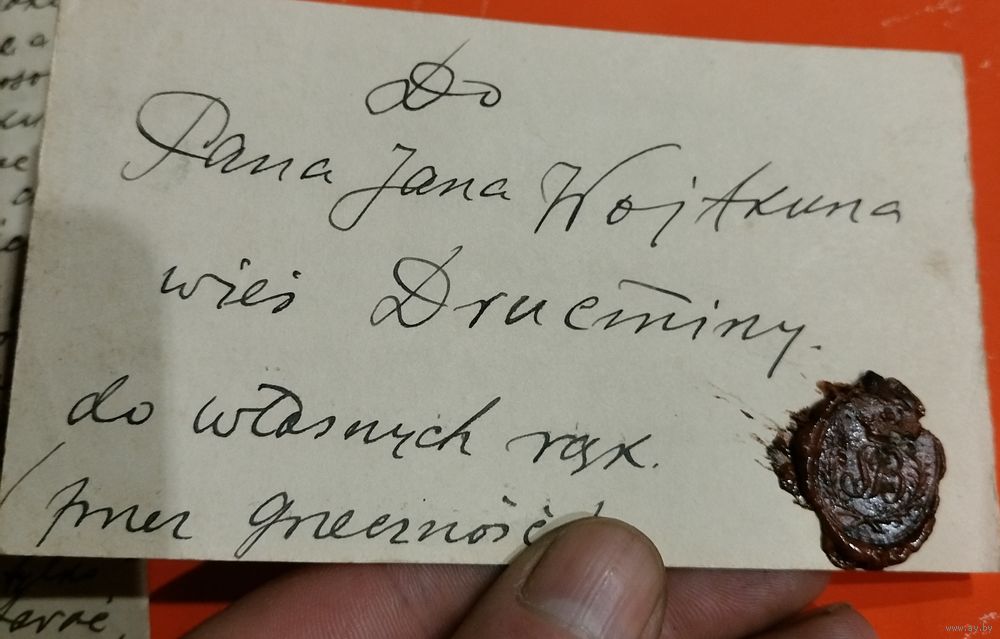 Do
Pana Jana Wojtkuna
wieś Drucminy.
do własnych rąk.
(przez grzeczność)
www.ay.by